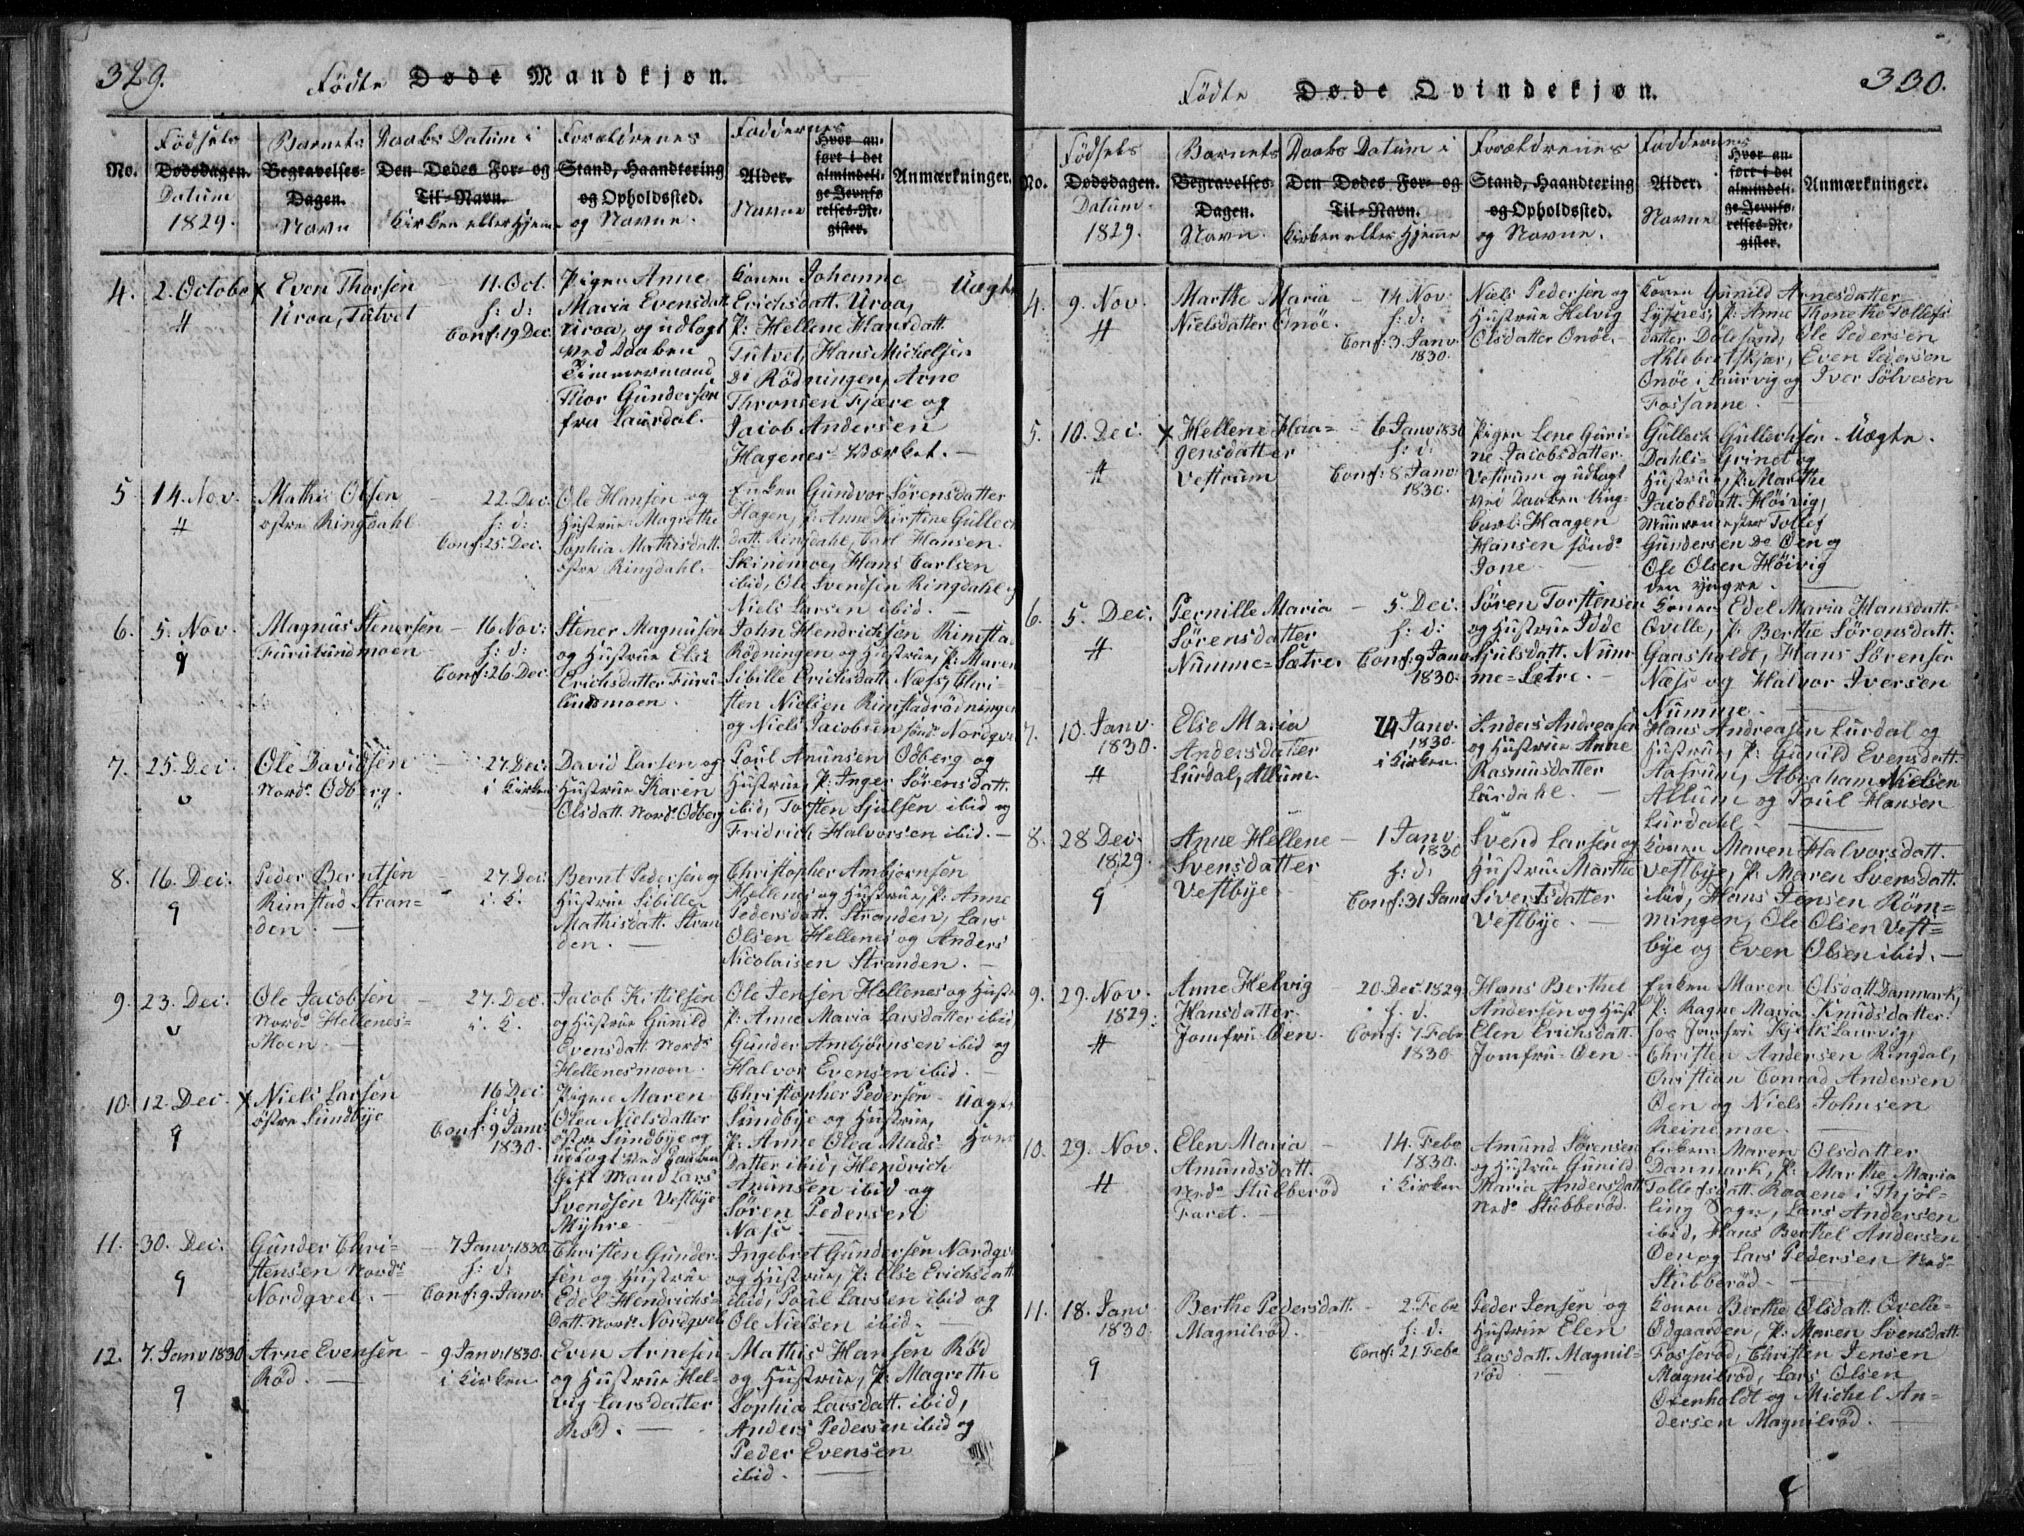 329.
Fødte Døde Mandkjøn.
No.
Fødsels
Dødsdagen.
Datum
1829.
Barnets
Begravelses-
Dagen.
Navn
Daabs Datum i
Den Dødes For- og
Til-Navn.
Kirken eller Hjeme
Forældrenes
Stand, Haandtering
og Opholdssted.
og Navne.
Faddernes
Alder.
Navne
Hvor an-
ført i det
almindeli-
ge Jevnfø-
relses-Re-
gister.
Anmærkninger.
4.
2. October
#
x Even Thorsen
Uroa, Tutvet
11. Oct.
h: d:
Conf: 19 Dec.
Pigen Anne
Maria Evensdatt
Uroa, og udlagt
ved Daaben
Timmermand
Thor Gundersen
fra Laurdal.
Konen Johanne
Erichsdatt. Uroa,
P: Hellene Hansdatt.
Tutvet, Hans Michelsen
de Rödningen, Arne
Thronsen Fjære og
Jacob Andersen
Hagenes-Værket. –
Uægte
5
14. Nov.
#
Mathis Olsen
østre Ringdahl
22. Dec:
h: d:
Conf: 25. Dec.
Ole Hansen og
Hustrue Magrethe
Sophia Mathisdatt.
østre Ringdahl.
Enken Gundvor Sørensdatter
Hagen, P: Anne Kirstine Gullech
datt. Ringdahl, Carl Hansen
Skindmoe, Hans Carlsen
ibid, Ole Svendsen Ringdahl og
Niels Larsen ibid. –
6.
5. Nov.
9
Magnus Stenersen
Furulundmoen
– 16 Nov:
h: d:
Conf: 26 Dec.
Stener Magnusen
og Hustrue Else
Erichsdatter Furu-
lundmoen. –
John Hendrichsen Rimstad
Rødningen og Hustrue, P: Maren
Sibille Erichsdatt. Næss, Chri-
sten Nielsen Rimstadrödningen
og Niels Jacobsen sønd: Nordqve
7.
25. Dec
Ole Davidsen
Nord: Odberg.
27 Dec:
i Kirken
David Larsen og
Hustrue Karen
Olsdatt. Nord: Odberg
Poul Anunsen Odberg og
Hustrue, P: Inger Sørensdatt.
ibid, Torsten Sjulsen ibid og
Fridrich Halvorsen ibid. –
8.
16. Dec.
9
Peder Berntsen
Rimstad Stran-
den. –
27 Dec:
i. K.
Bernt Pedersen og
Hustrue Sibille
Mathisdatt. Stran
den. –
Christopher Ambjørnsen
Hellenes og Hustrue, P: Anne
Pedersdatt. Stranden, Lars
Olsen Hellenes og Anders
Nicolaisen Stranden. –
9.
23. Dec.
Ole Jacobsen
Nord: Hellenes-
Moen. –
27. Dec.
i. K.
Jacob Kittilsen
og Hustrue Gunild
Evensdatt. Nord:
Hellenesmoen.
Ole Jensen Hellenes og Hustr
P: Anne Maria Larsdatter ibid
Gunder Ambjørnsen ibid og
Halvor Evensen ibid. –
10.
12. Dec
9
x Niels Larsen
østre Sundbye
16 Dec
h: d:
Conf: 9 Janv:
1830.
Pigen Maren
Olea Nielsdatter
østre Sundbye og
udlagt ved Daaben
Gift Mand Lars
Svendsen Vestbye
Myhre –
Christopher Pedersen
Sundbye og Hustrue,
P: Anne Olea Mads-
datter ibid, Hendrich
Anunsen ibid og
Søren Pedersen
Næss –
Uægte
11.
30. Dec.
9
Gunder Chri-
stensen Nord:
Nordqvel. –
– 7 Janv: 1830.
h: d:
Conf: 9. Janv:
Christen Gunder-
sen og Hustrue
Edel Hendrichs-
datt. Nord: Nordqvel
Ingebret Gundersen Nordqve
og Hustrue, P: Else Erichsdatt
ibid, Poul Larsen ibid og
Ole Nielsen ibid. –
12.
7. Janv 1830
9
Arne Evensen
Röd. –
– 9 Janv: 1830.
i Kirken
Even Arnesen
og Hustrue Hel-
vig Larsdatter
Röd. –
Mathis Hansen Röd
og Hustrue, P: Magrethe
Sophia Larsdatt. ibid,
Anders Pedersen ibid og
Peder Evensen
ibid. –
330.
Fødte Døde Qvindekjøn.
No.
Fødsels
Dødsdagen.
Datum.
1829.
Barnets
Begravelses-
Dagen.
Navn.
Daabs Datum i
Den Dødes For- og
Til-Navn.
Kirken eller Hjemme
Forældrenes
Stand, Haandtering
og Opholdssted.
og Navne.
Faddernes
Alder.
Navne
Hvor an-
ført i det
almindeli-
ge Jevnfø-
relses-Re-
gister.
Anmærkninger.
4.
9. Nov.
#
Marthe Maria
Nielsdatter Onöe.
– 14 Nov:
h: d:
Conf: 3. Janv.
1830.
Niels Pedersen og
Hustrue Helvig
Olsdatter Onöe. –
Konen Gunild Arnesdatter
Lysnes, P: Anne Thonethe Tollefs
datter Dolesund, Ole Pedersen
Ahlebertskjær, Even Pedersen
Onöe i Laurvig og Iver Sölvesen
Fossanne. –
5.
10. Dec.
#
x Hellene Haa-
gensdatter
Vestrum
– 6 Janv 1830
h: d:
Conf: 8. Janv:
1830.
Pigen Lene Guri-
ne Jacobsdatter
Vestrum og udlagt
ved Daaben Ung-
karl: Haagen
Hansen sönd:
Jone. –
Gullech Gullechsen
Dahls-Grinet og
Hustrue, P: Marthe
Jacobsdatt. Höivig,
Muuremester Tollef
Gundersen de Öen og
Ole Olsen Höivig
den yngre. –
Uægte.
6.
5. Dec:
#
Pernille Maria
Sörensdatter
Numme-Sætre.
– 5. Dec.
h: d:
Conf: 9 Janv
1830.
Sören Torstensen
og Hustrue Idde
Sjulsdatt. Num-
me-Sætre. –
Konen Edel Maria Hansdatt.
Qvelle, P: Berthe Sörensdatt.
Gaasholdt, Hans Sörensen
Næss og Halvor Iversen
Numme. –
7.
10. Janv.
1830.
#
Else Maria
Andersdatter
Lurdal, Allum.
24 Janv.
1830.
i Kirken.
Anders Andreasen
og Hustrue Anne
Rasmusdatter
Lurdahl. –
Hans Andreasen Lurdal og
Hustrue, P: Gunild Evensdatt.
Aasrum, Abraham Nielsen
Allum og Poul Hansen
Lurdahl. –
8.
28 Dec.
1829.
9
Anne Hellene
Svensdatter
Vestbye
– 1 Janv.
1830
h: d:
Conf: 31 Janv
Svend Larsen og
Hustrue Marthe
Sivertsdatter
Vestbye. –
Konen Maren Halvorsdatt.
Vestbye, P: Maren Svensdatt.
ibid, Hans Jensen Röm-
mingen, Ole Olsen Vest-
bye og Even Olsen ibid. –
9.
29. Nov.
1829.
#
Anne Helvig
Hansdatter
Jomfru-Öen.
– 20. Dec. 1829.
h. d.
Conf: 7 Febr
1830.
Hans Berthel
Andersen og Hust:
Elen Erichsdatt.
Jomfru-Öen –
Enken Maren Olsdatt. Danmark,
P: Ragne Maria Knudsdatter
hos Jomfru Kjelk Laurvig,
Christen Andersen Ringdal,
Christian Conrad Andersen
Öen og Niels Johnsen
Reinsmoe. –
10.
29. Nov.
#
Elen Maria
Amundsdatt.
Nord: Stubberöd
Faret. –
– 14. Febr
1830.
i Kirken
Amund Sörensen
og Hustrue Gunild
Maria Andersdatt
Nord: Stubberöd.
Enken Maren Olsdatter
Danmark, P: Marthe Maria
Tollefsdatt. Raaene i Thjöl-
ling Sogn, Lars Andersen
ibid, Hans Berthel Andersen
Öen og Lars Pedersen Nord:
Stubberöd. –
11.
18. Janv
1830.
9
Berthe Pedersdatt.
Magnilröd.
– 2. Febr
h. d.
Conf: 21 Febr
Peder Jensen og
Hustrue Elen
Larsdatt. Magnil-
röd. –
Konen Berthe Olsdatt. Qvelle-
Odgaarden, P: Maren Svensdatt.
Fosseröd, Christen Jensen
Magnilröd, Lars Olsen
Oxenholdt og Michel An-
dersen Magnilröd. –